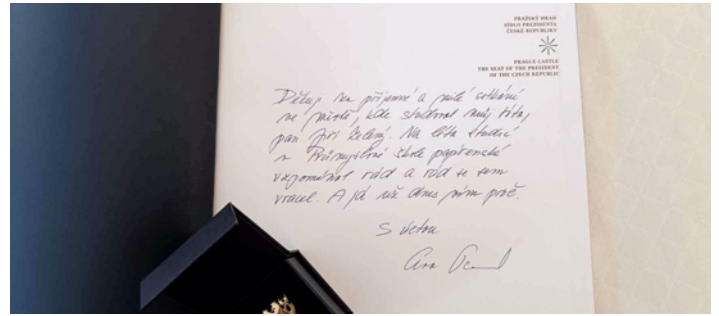 PRAŽSKÝ HRAD
SÍDLO PREZIDENTA
ČESKÉ REPUBLIKY
PRAGUE CASTLE
THE SEAT OF THE PRESIDENT
OF THE CZECH REPUBLIC
Děkuji za příjemné a milé setkání
na místě, kde studoval můj táta,
pan Jiří Zelený. Na léta studií
v Průmyslové škole papírenské
vzpomínal rád a rád se sem
vracel. A já už dnes vím proč.
S úctou